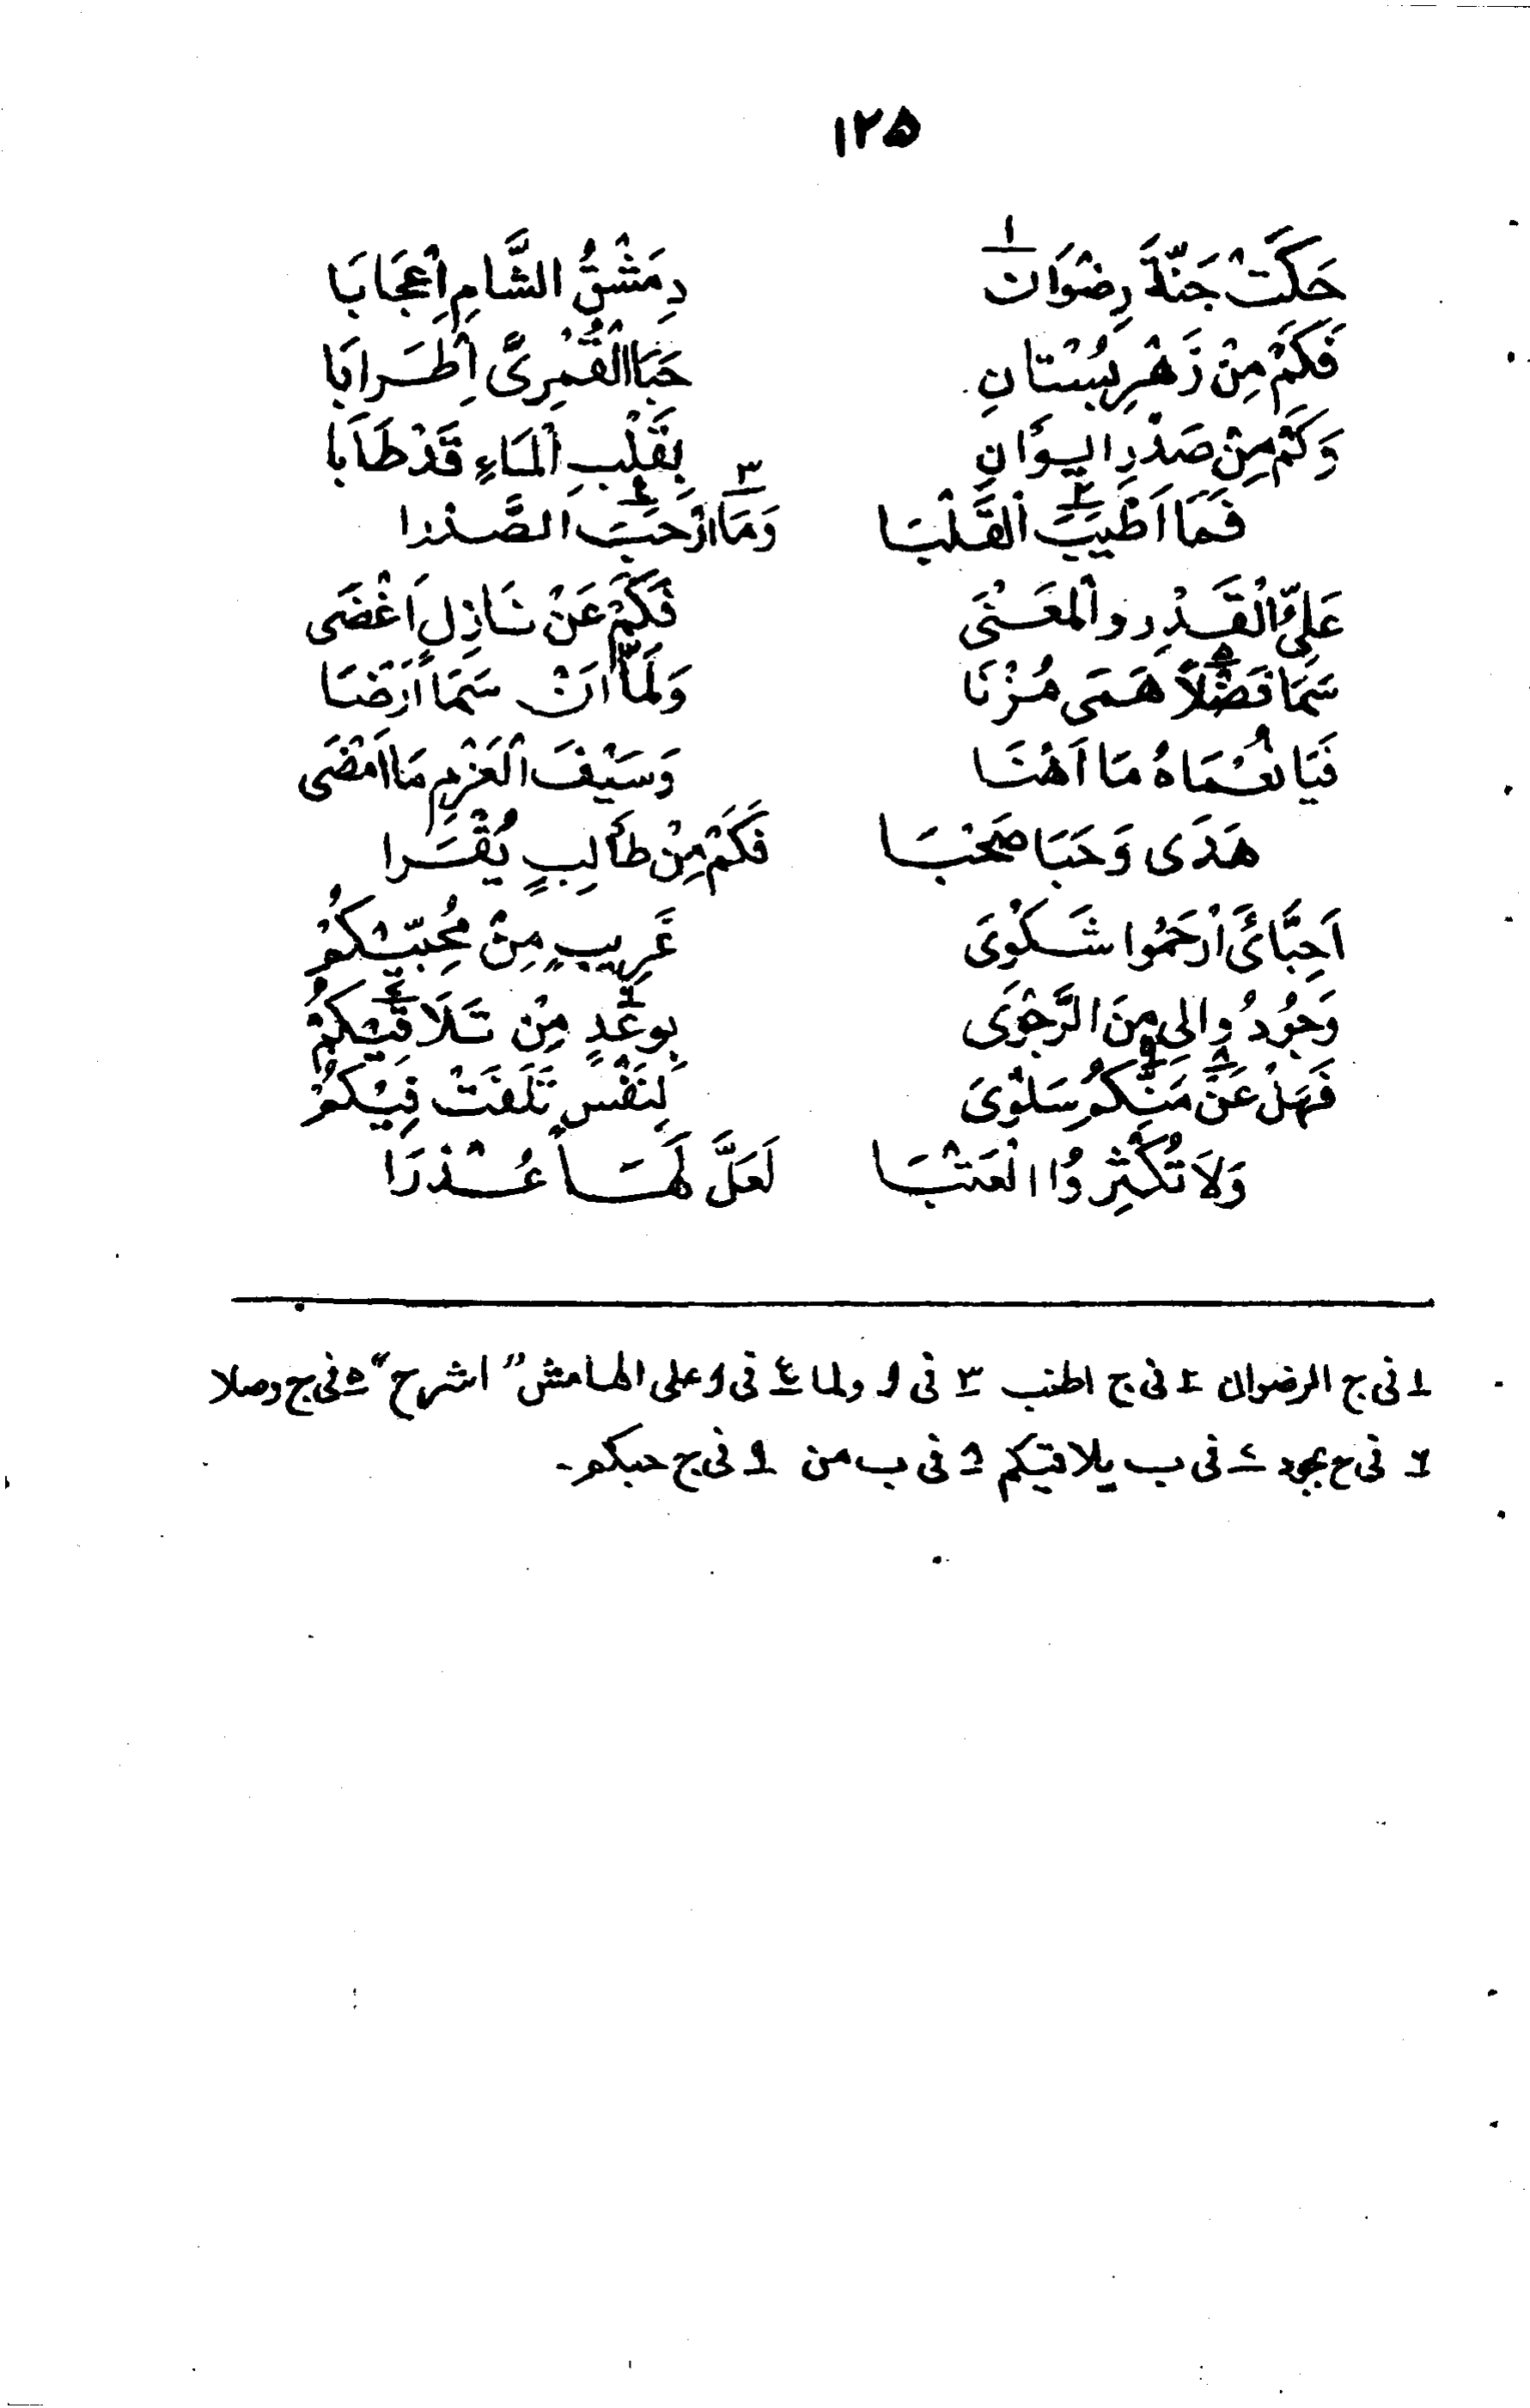 ١٢٥
حَكَتْ جَنَّةَ رِضْوَان١ دِمَشْقُ الشَّامِ اِعْجَابَا
فَكَمْ مِنْ زَهْرِ بُسْتَانِ حَبَا الْقُمْرِىَّ اِطْرَابَا
وَكَمْ مِنْ صَدْرِ ايوَانِ بِقَلْبِ الْمَاءِ قَدْ طَابا
فَمَا اَطْيَبَ٢ الْقَلْبَا وَمَا٣ ارْحَبَ٤ الصَّدْرا
عَلِىُّ الْقَدْرِ والْمَعْنَى فَكَمْ عَنْ نَازِلٍ اَغْضَى
سَمَا فَضْلاً٥ هَمَى مُزْنَا وَلَمَّا اَنْ سَمَا اَرْضَا
فَيَا نُعْمَاهُ مَا اَهْنَا وَسَيْفَ الْعَزْمِ مَا اَمْضَى
هَدَى وَحَبَا صَحْبَا فَكَمْ مِنْ طَالِبٍ يُقْرَا
اَحِبَّائَ ارْحَمُوا شَكْوَى غَرِيبٍ مِنْ مُحِبّيْكُمْ
وَجُودُوا لِى مِنَ الرَّجْوَى بِوعْدٍ٦ مِنْ تَلَاقِيْكُمْ٧
فَهَلْ عَنْ٨ مَنِّكُمُ٩ سَلْوَى لِنَفْسٍ تَلَفَتْ فِيْكُمْ
وَلَا تُكْثِرُوا الْعَتْبَا لَعَلَّ لَهَا عُذْرَا
١ فى ج الرضوان ٢ فى ج اطنب ٣ فى ا ولما ٤ فى ا وعلى الهامش "اشرح" ٥ فى ج وصلا
٦ فى ج بجود ٧ فى ب يلاقيكم ٨ فى ب من ٩ فى ج حبكم ـ